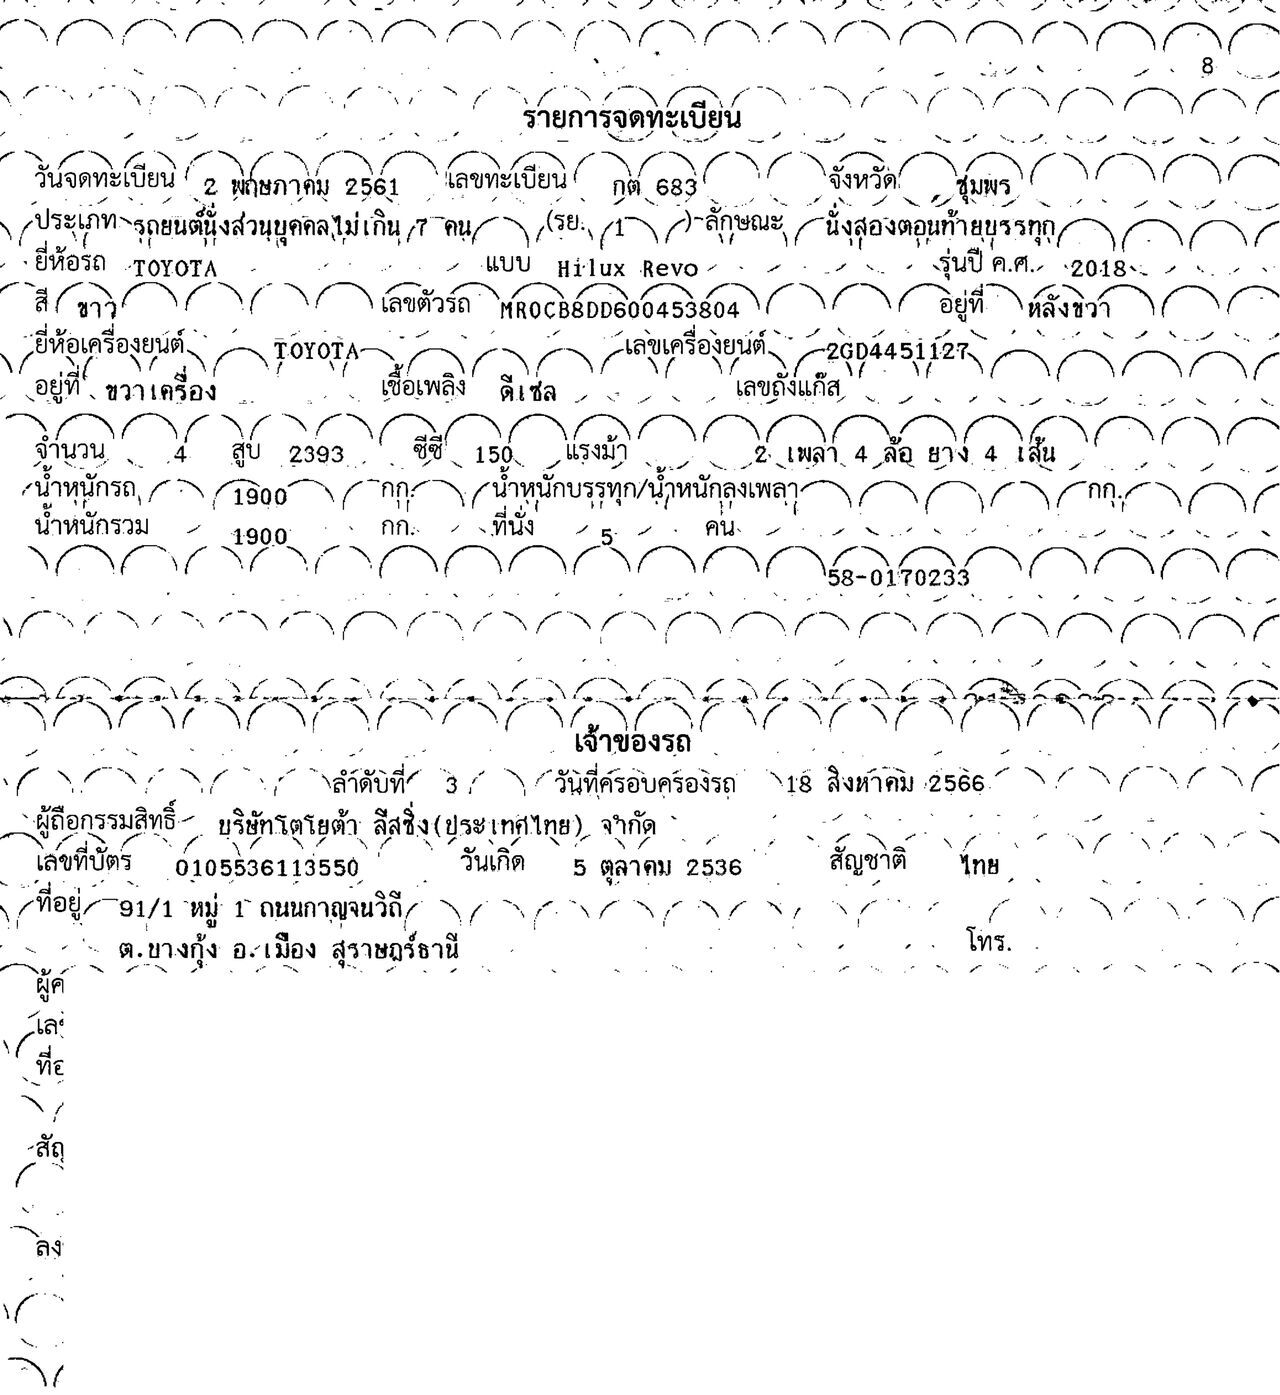 8
รายการจดทะเบียน
วันจดทะเบียน 2 พฤษภาคม 2561 เลขทะเบียน กต 683 จังหวัด ชุมพร
ประเภท รถยนต์นั่งส่วนบุคคลไม่เกิน 7 คน (รย. 1 ) ลักษณะ นั่งสองตอนท้ายบรรทุก
ยี่ห้อรถ TOYOTA แบบ Hilux Revo รุ่นปี ค.ศ. 2018
สี ขาว เลขตัวรถ MR0CB8DD600453804 อยู่ที่ หลังขวา
ยี่ห้อเครื่องยนต์ TOYOTA เลขเครื่องยนต์ 2GD4451127
อยู่ที่ ขวาเครื่อง เชื้อเพลิง ดีเซล เลขถังแก๊ส
จำนวน 4 สูบ 2393 ซีซี 150 แรงม้า 2 เพลา 4 ล้อ ยาง 4 เส้น
น้ำหนักรถ 1900 กก. น้ำหนักบรรทุก/น้ำหนักลงเพลา กก.
น้ำหนักรวม 1900 กก. ที่นั่ง 5 คน
58-0170233
เจ้าของรถ
ลำดับที่ 3 วันที่ครอบครองรถ 18 สิงหาคม 2566
ผู้ถือกรรมสิทธิ์ บริษัทโตโยต้า ลีสซิ่ง(ประเทศไทย) จำกัด
เลขที่บัตร 0105536113550 วันเกิด 5 ตุลาคม 2536 สัญชาติ ไทย
ที่อยู่ 91/1 หมู่ 1 ถนนกาญจนวิถี
ต.บางกุ้ง อ.เมือง สุราษฎร์ธานี โทร.